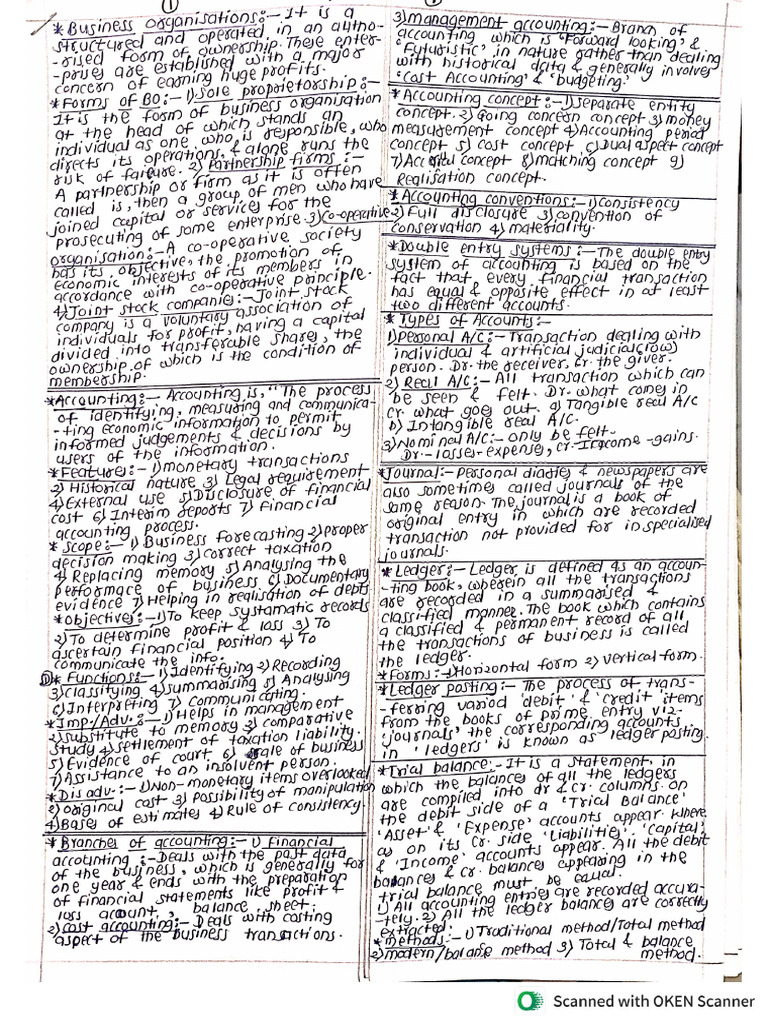 ①
* Business organisations:- It is a
structured and operated in an autho-
-rised form of ownership. These enter-
-prises are established with a major
concern of earning huge profits.
* Forms of BO:- 1) Sole proprietorship:-
It is the form of business organisation
at the head of which stands an
individual as one who is responsible, who
directs its operations, & alone runs the
risk of failure. 2) Partnership firms:-
A partnership or firm as it is often
called is, then a group of men who have
joined capital or services for the
prosecuting of some enterprise. 3) Co-operative
organisation:- A co-operative society
has its objective, the promotion of
economic interests of its members in
accordance with co-operative principle.
4) Joint stock companies:- Joint stock
company is a voluntary association of
individuals for profit, having a capital
divided into transferable shares, the
ownership of which is the condition of
membership.
* Accounting:- Accounting is, "The process
of identifying, measuring and communica-
-ting economic information to permit
informed judgements & decisions by
users of the information.
* Features:- 1) monetary transactions
2) Historical nature 3) Legal requirement
4) External use 5) Disclosure of financial
cost 6) Interim reports 7) Financial
accounting process.
* Scope:- 1) Business forecasting 2) proper
decision making 3) correct taxation
4) Replacing memory 5) Analysing the
performace of business 6) Documentary
evidence 7) Helping in realisation of debts
* Objectives:- 1) To keep systamatic records
2) To determine profit & loss 3) To
ascertain financial position 4) To
communicate the info.
* Functions:- 1) Identifying 2) Recording
3) classifying 4) summarising 5) Analysing
6) Interpreting 7) communicating.
* Imp./Adv.:- 1) Helps in management
2) substitute to memory 3) comparative
study 4) settlement of taxation liability.
5) Evidence of court 6) sale of business
7) Assistance to an insolvent person.
* Dis adv.:- 1) Non-monetary items overlooked
2) original cost 3) possibility of manipulation
4) Bases of estimates 4) Rule of consistency
* Branches of accounting:- 1) Financial
accounting:- Deals with the past data
of the business, which is generally for
one year & ends with the preparation
of financial statements like profit &
loss account, balance sheet.
2) cost accounting:- Deals with costing
aspect of the business transactions.
3) management accounting:- Branch of
accounting which is 'Forward looking' &
'Futuristic' in nature gather than dealing
with historical data & generally involves
'Cost Accounting' & 'budgeting.'
* Accounting concept:- 1) separate entity
concept. 2) Going concern concept 3) money
measurement concept 4) Accounting period
concept 5) cost concept 6) Dual aspect concept
7) Accrual concept 8) matching concept 9)
Realisation concept.
* Accounting conventions:- 1) consistency
2) Full disclosure 3) convention of
conservation 4) materiality.
* Double entry systems:- The double entry
system of accounting is based on the
fact that, every financial transaction
has equal & opposite effect in at least
two different accounts.
* Types of Accounts:-
1) Personal A/C:- Transaction dealing with
individual & artificial judicial (low)
person. Dr. the receiver, cr. the giver.
2) Real A/C:- All transaction which can
be seen & felt. Dr. what comes in
cr. what goes out. a) Tangible real A/C
b) Intangible real A/C.
3) Nominal A/C:- only be felt-
Dr.- losses-expense, cr.- Income-gains.
* Journal:- Personal diaries & newspapers are
also sometimes called journals of the
same reason. The journal is a book of
original entry in which are recorded
transaction not provided for in specialised
journals.
* Ledger:- Ledger is defined as an accoun-
-ting book, wherein all the transactions
are recorded in a summarised &
classified manner. The book which contains
a classified & permanent record of all
the transactions of business is called
the ledger.
* Forms:- 1) Horizontal form 2) vertical form.
* Ledger posting:- The process of trans-
-ferring varios 'debit' & 'credit' items
from the books of prime entry viz-
'journals' the corresponding accounts
in 'ledgers' is known as ledger posting.
* Trial balance:- It is a statement, in
which the balances of all the ledgers
are compiled into dr & cr. columns. on
the debit side of a 'Trial Balance'
'Asset' & 'Expense' accounts appear. where
as on its cr. side 'Liabilities'. 'Capital'
& 'Income' accounts appear. All the debit
balances & cr. balances appearing in the
trial balance must be equal.
1) All accounting entries are recorded accura-
-tely. 2) All the ledger balances are correctly
extracted.
* methods:- 1) Traditional method/Total method
2) modern/balance method 3) Total & balance
method.
Scanned with OKEN Scanner